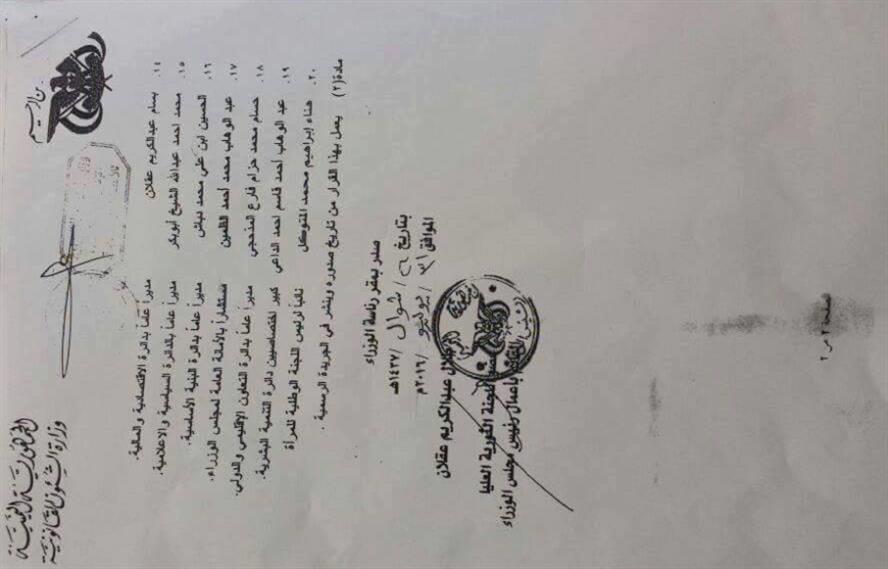 الجمهورية اليمنية
وزارة الشئون القانونية
١٤. بسام عبدالكريم عقلان مديراً عاماً بدائرة الاقتصادية والمالية.
١٥. محمد احمد عبدالله الشيخ أبوبكر مديراً عاماً بالدائرة السياسية والاعلامية.
١٦. الحسين ابن علي محمد دباش مديراً عاماً بدائرة البنية الأساسية.
١٧. عبد الوهاب محمد أحمد الظمين مستشاراً بالأمانة العامة لمجلس الوزراء.
١٨. حسام محمد حزام فارع المذحجي مديراً عاماً بدائرة التعاون الإقليمي والدولي.
١٩. عبد الوهاب أحمد قاسم احمد الداعي كبير اختصاصيين دائرة التنمية البشرية.
٢٠. هناء إبراهيم محمد المتوكل نائباً لرئيس اللجنة الوطنية للمرأة
مادة(٢) يعمل بهذا القرار من تاريخ صدوره وينشر في الجريدة الرسمية.
صدر بمقر رئاسة الوزراء
بتاريخ ٢٦/ شوال /١٤٣٧هـ
الموافق ٣١/ يوليو /٢٠١٦م
عبدالكريم عقلان
اللجنة الثورية العليا
القائم بأعمال رئيس مجلس الوزراء
صفحة ٢ من ٢